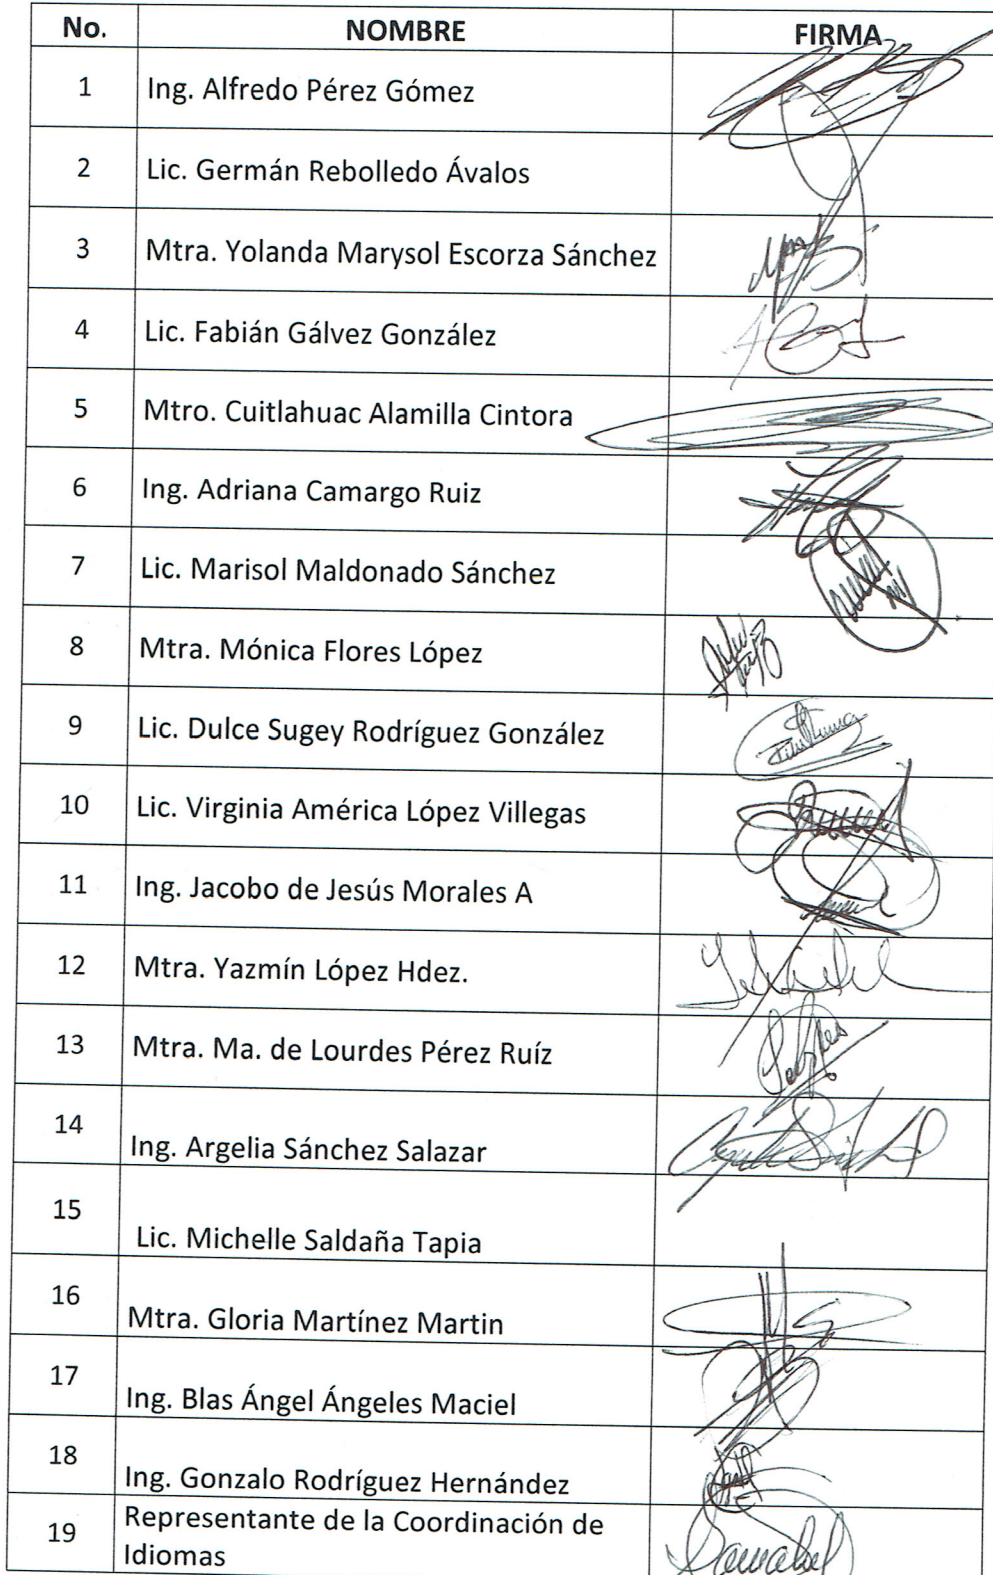 No. NOMBRE FIRMA
1 Ing. Alfredo Pérez Gómez
2 Lic. Germán Rebolledo Ávalos
3 Mtra. Yolanda Marysol Escorza Sánchez
4 Lic. Fabián Gálvez González
5 Mtro. Cuitlahuac Alamilla Cintora
6 Ing. Adriana Camargo Ruiz
7 Lic. Marisol Maldonado Sánchez
8 Mtra. Mónica Flores López
9 Lic. Dulce Sugey Rodríguez González
10 Lic. Virginia América López Villegas
11 Ing. Jacobo de Jesús Morales A
12 Mtra. Yazmín López Hdez.
13 Mtra. Ma. de Lourdes Pérez Ruíz
14 Ing. Argelia Sánchez Salazar
15 Lic. Michelle Saldaña Tapia
16 Mtra. Gloria Martínez Martin
17 Ing. Blas Ángel Ángeles Maciel
18 Ing. Gonzalo Rodríguez Hernández
19 Representante de la Coordinación de
Idiomas